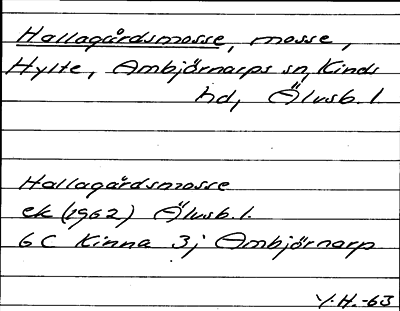 Hallagårdsmosse, mosse,
Hylte, Ambjörnarps sn, Kinds
hd, Älvsb. l.
Hallagårdsmosse
ek (1962) Älvsb. l.
6C Kinna 3j Ambjörnarp
Y.H.-63